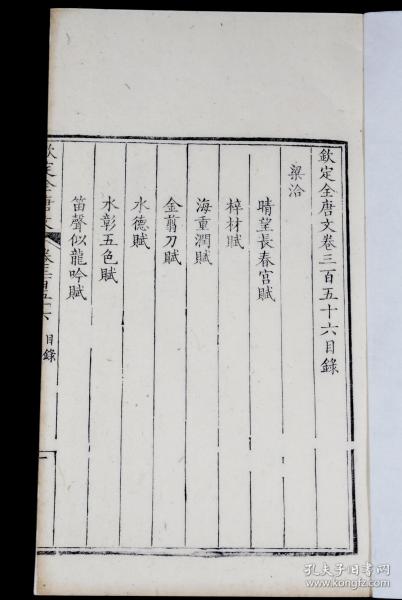 欽定全唐文卷三百五十六目錄
梁洽
晴望長春宮賦
梓材賦
海重潤賦
金剪刀賦
水德賦
水彰五色賦
笛聲似龍吟賦
欽定全唐文
卷三百五十六
目錄
一
孔夫子旧书网